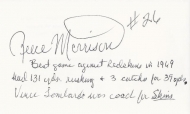 Reece Morrison #26
Best game against Redskins in 1969
had 131 yds rushing + 3 catches for 39 yds
Vince Lombardo was coach for Skins